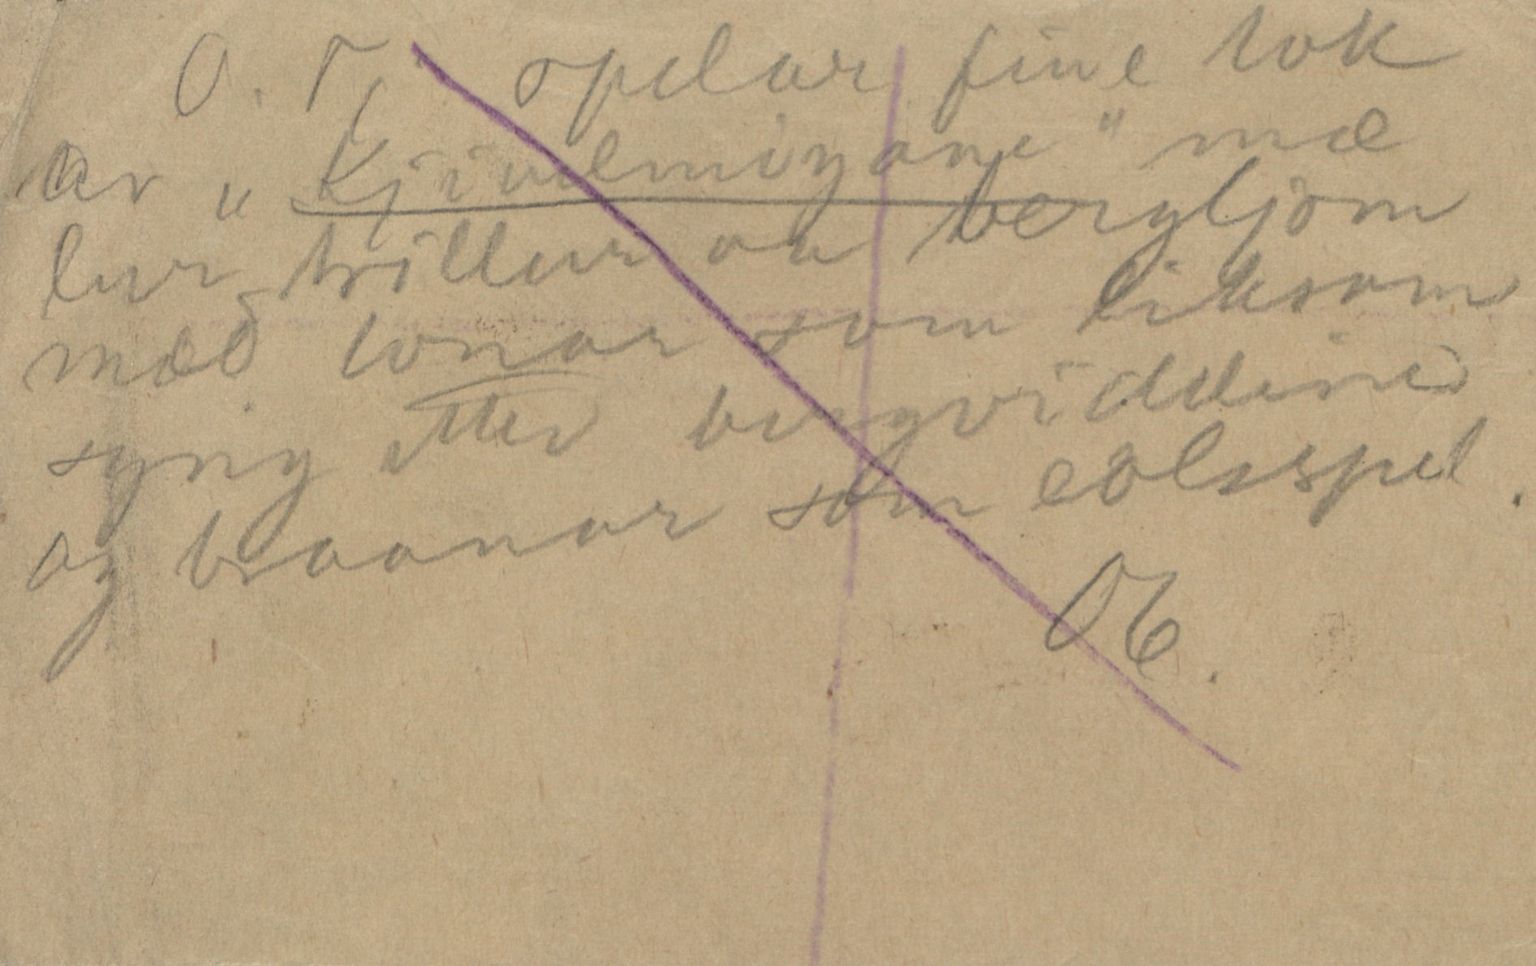 O. F. spelar fine tok
av „Kjivlemøyane" mæ
lur trillur aa bergljom
mæd tonar som liksom
syng etter bergviddine
og braanar som eolsspel.
OE.